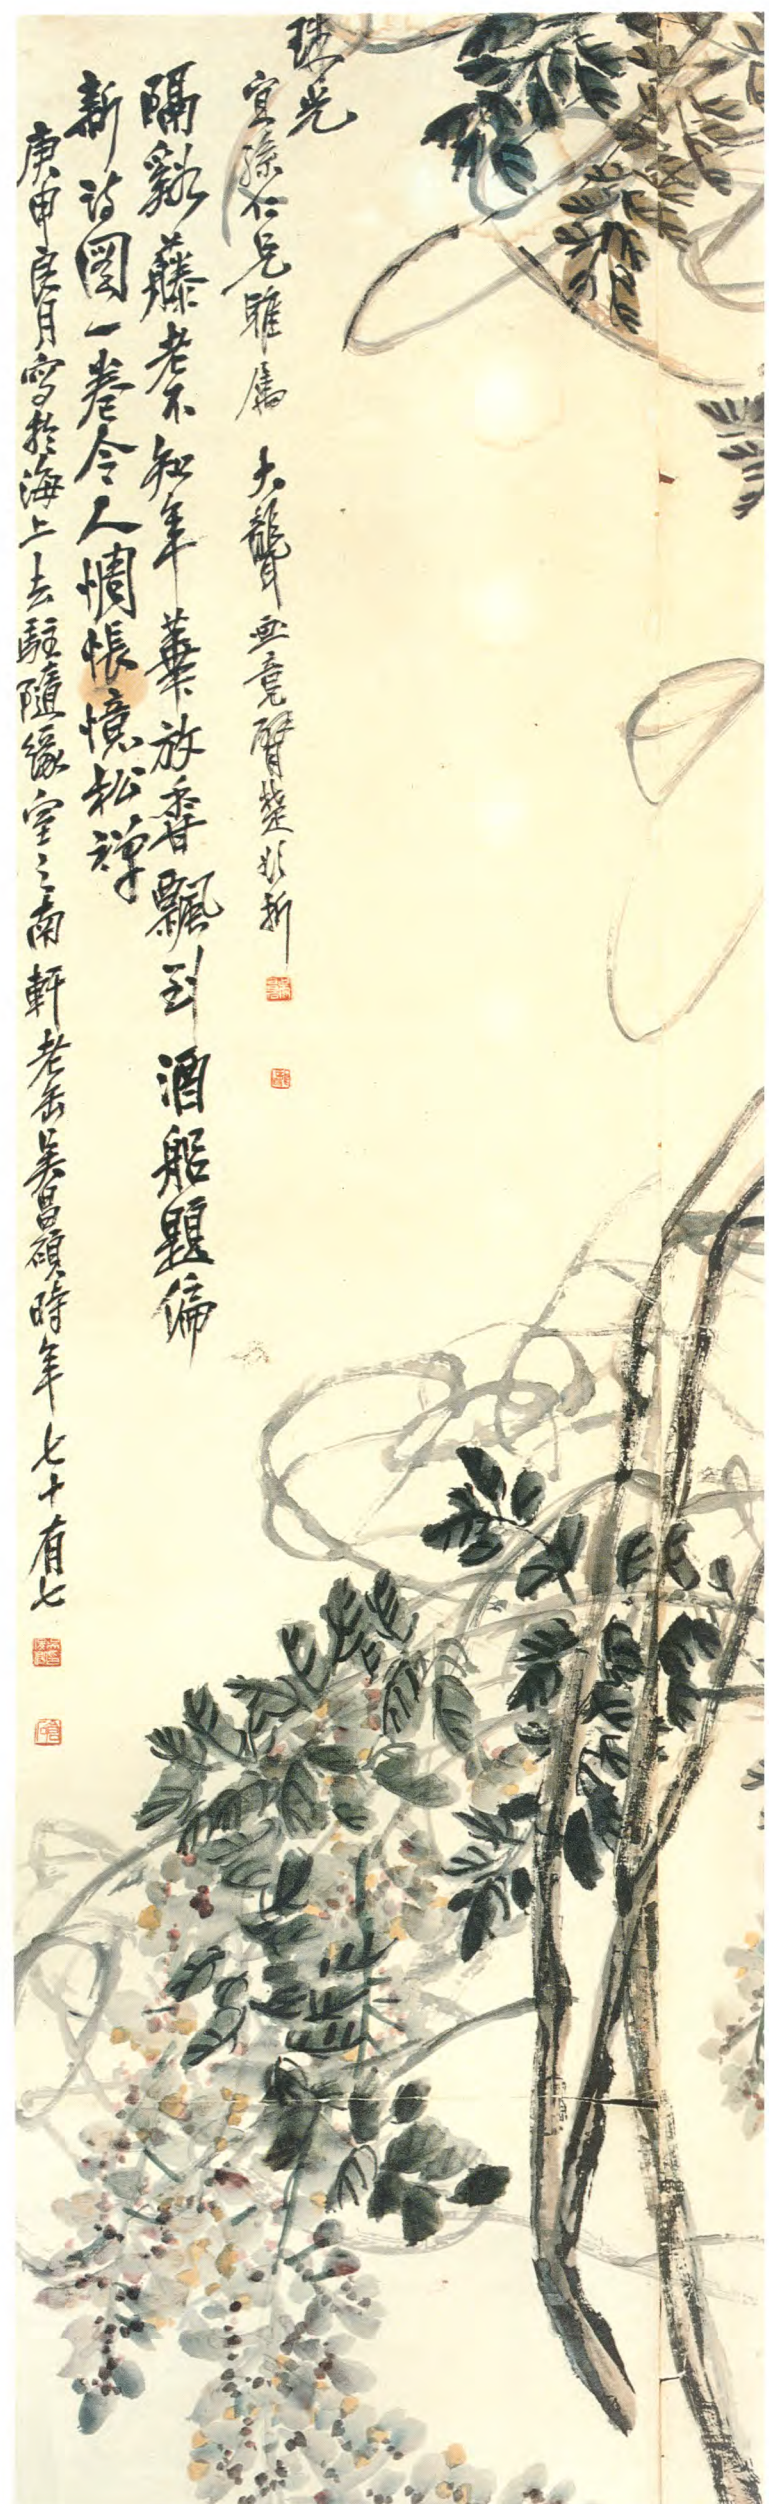 珠光
宜孫仁兄雅属 大聾画竟臂楚欲折
隔谿藤老不知年 華放香飄到酒船 題徧
新詩图一卷 令人惆悵憶松禅
庚申良月写於海上去駐隨緣室之南軒 老缶吴昌碩時年七十有七